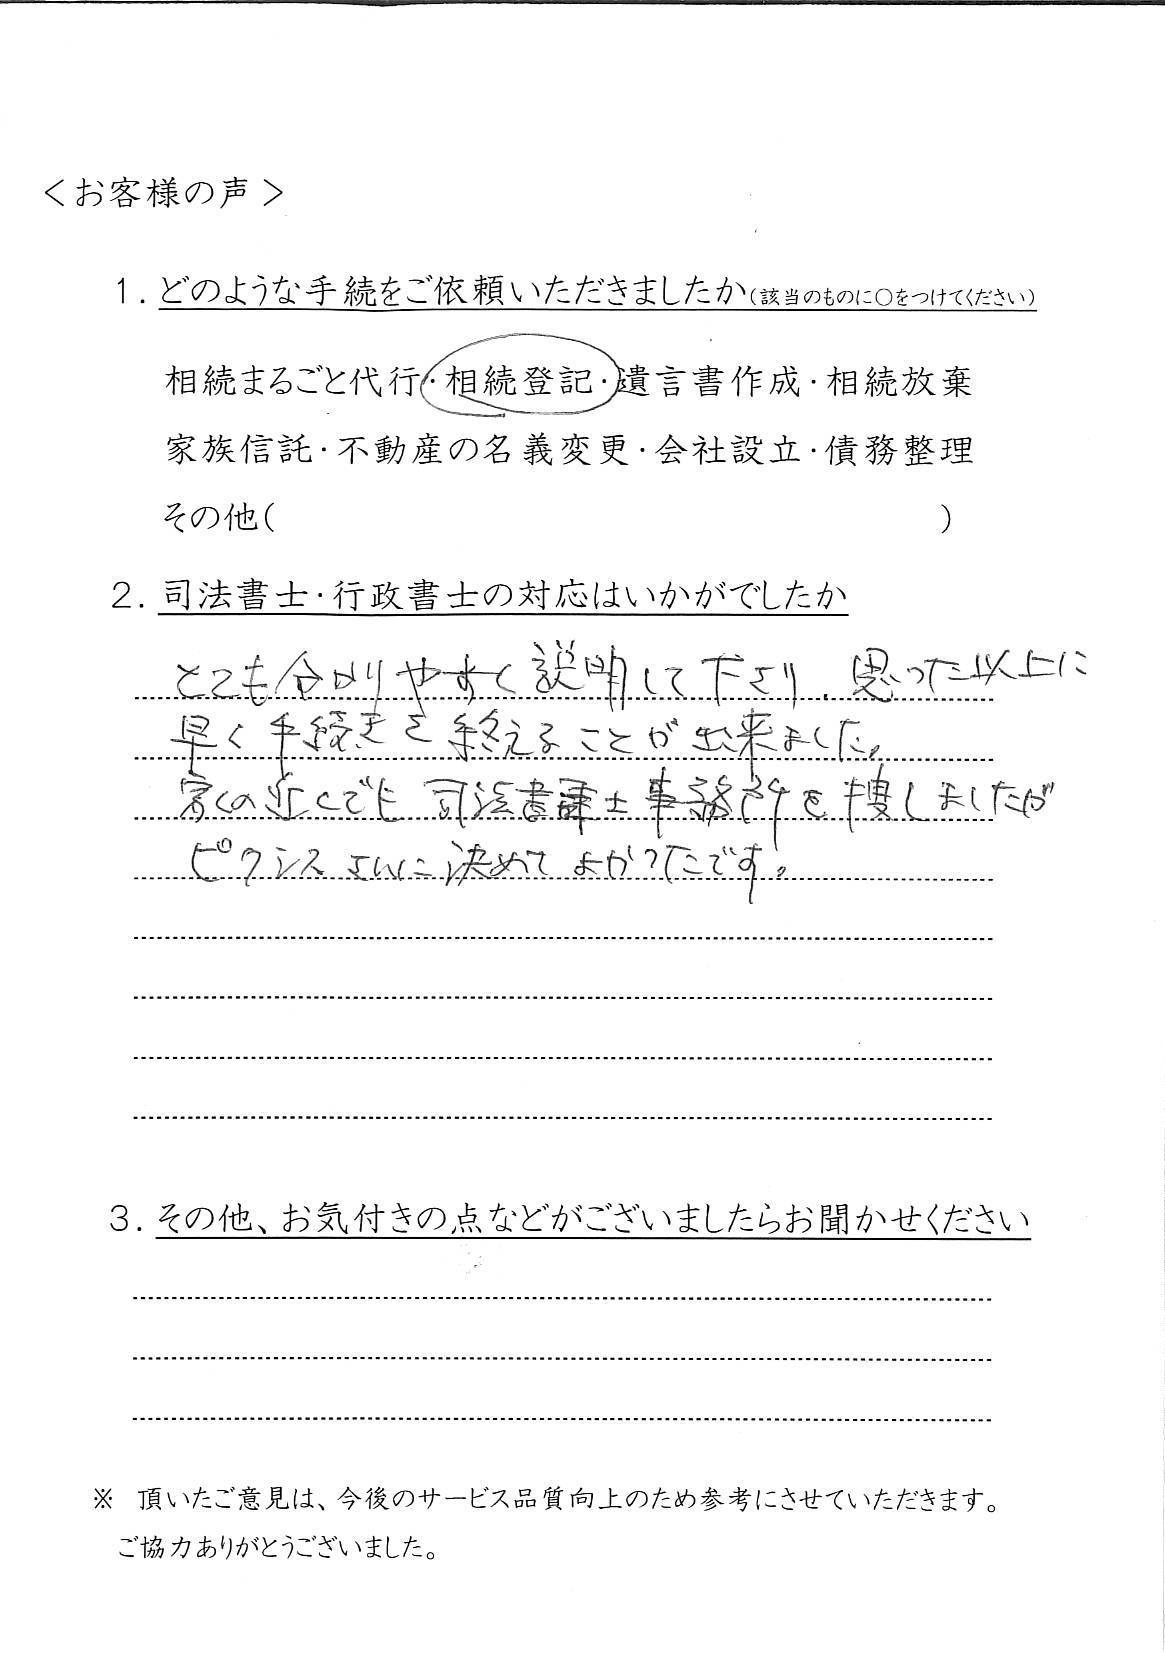 ＜お客様の声＞
1. どのような手続をご依頼いただきましたか(該当のものに○をつけてください)
相続まるごと代行・相続登記・遺言書作成・相続放棄
家族信託・不動産の名義変更・会社設立・債務整理
その他(　　　　　　　　　　　　)
2. 司法書士・行政書士の対応はいかがでしたか
とても分かりやすく説明して下さり、思った以上に
早く手続きを終えることが出来ました。
家の近くでも司法書士事務所を捜しましたが
ピクシスさんに決めてよかったです。
3. その他、お気付きの点などがございましたらお聞かせください
※ 頂いたご意見は、今後のサービス品質向上のため参考にさせていただきます。
ご協力ありがとうございました。